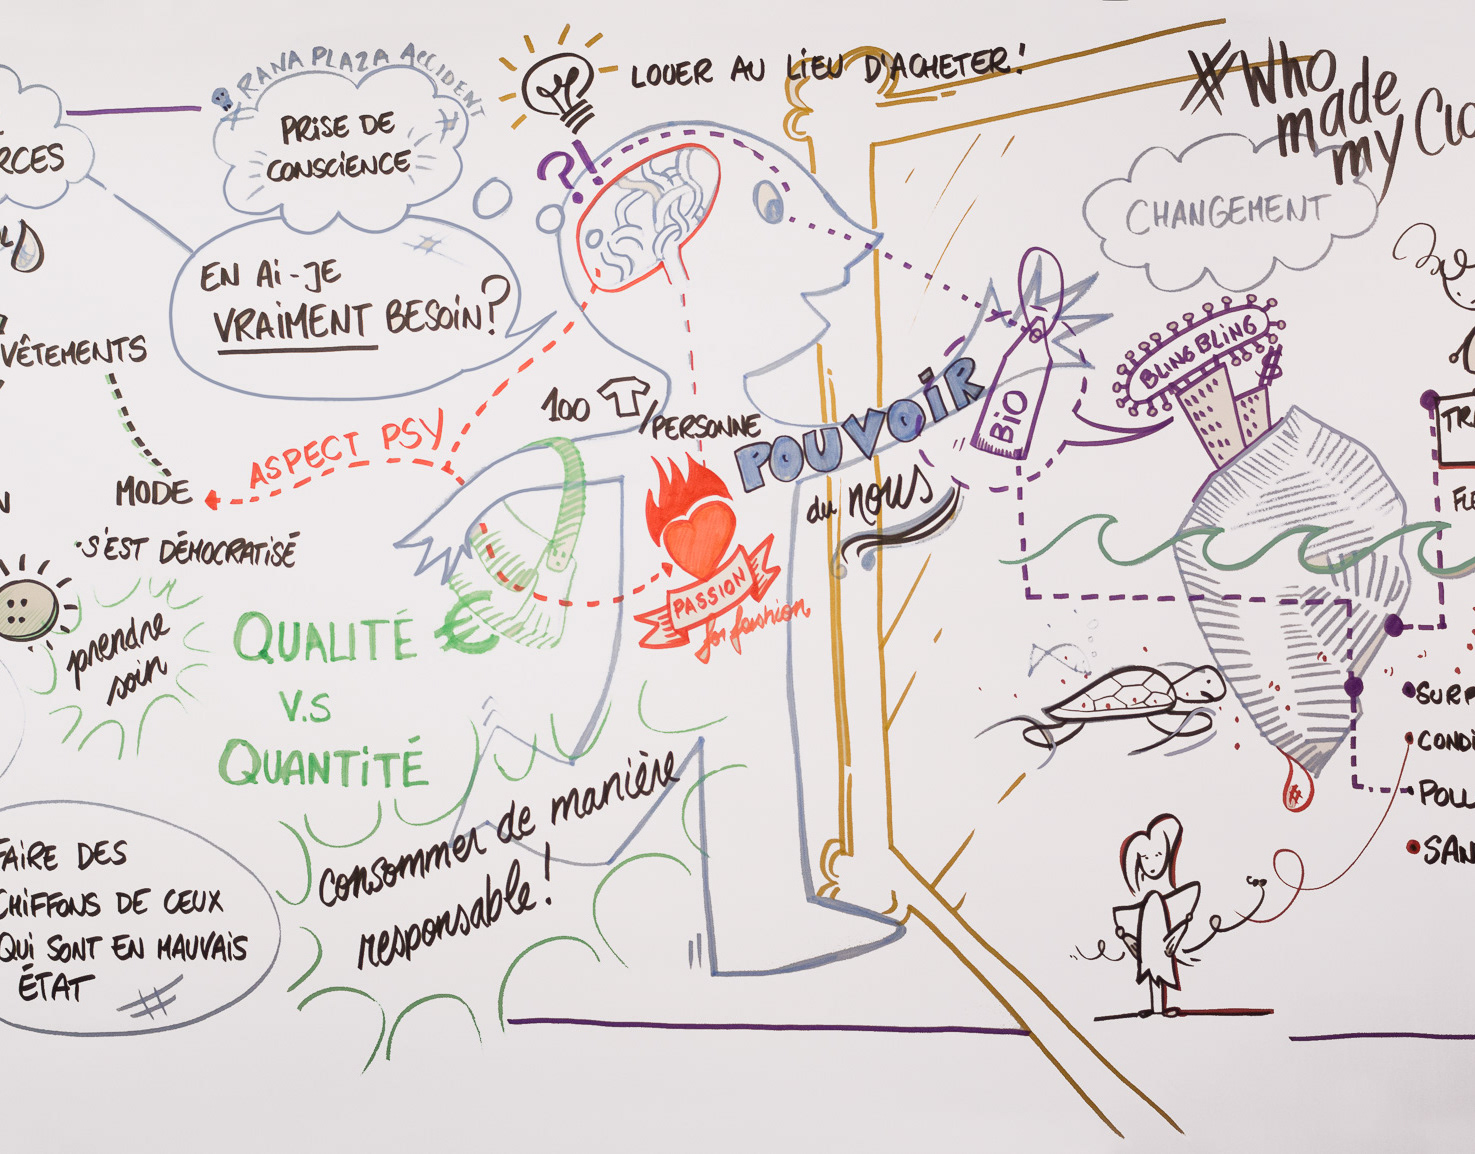 RANA PLAZA ACCIDENT
PRISE DE
CONSCIENCE
LOUER AU LIEU D'ACHETER!
#Who
made
my
CHANGEMENT
?!
EN AI-JE
VRAIMENT BESOIN?
VÊTEMENTS
MODE
S'EST DÉMOCRATISÉ
ASPECT PSY
100
/PERSONNE
POUVOIR
du nous
BIO
BLING BLING
$
PASSION
for fashion
prendre
soin
QUALITÉ
V.S
QUANTITÉ
€
Consommer de manière
responsable!
FAIRE DES
CHIFFONS DE CEUX
QUI SONT EN MAUVAIS
ÉTAT